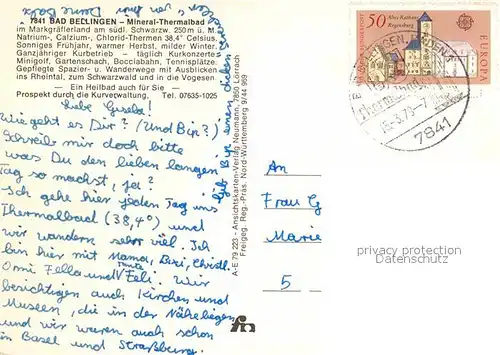 7841 BAD BELLINGEN – Mineral-Thermalbad
im Markgräflerland am südl. Schwarzw. 250 m ü. M.
Natrium-, Calzium-, Chlorid-Thermen 38,4° Celsius.
Sonniges Frühjahr, warmer Herbst, milder Winter.
Ganzjähriger Kurbetrieb – täglich Kurkonzerte
Minigolf, Gartenschach, Bocciabahn, Tennisplätze.
Gepflegte Spazier- u. Wanderwege mit Ausblicken
ins Rheintal, zum Schwarzwald und in die Vogesen
– Ein Heilbad auch für Sie –
Prospekt durch die Kurverwaltung. Tel. 07635-1025
Liebe Gisela!
Wie geht es Dir? (Und Bip?)
Schreib mir doch bitte
was Du den lieben langen
Tag so machst, ja?
Ich gehe hier jeden Tag ins
Thermalbad (38,4°) und
wir wandern sehr viel. Ich
bin hier mit Mama, Bixi, Christl
Omi Fella und Tante Feli. Wir
besichtigen auch Kirchen und
Museen, die in der Nähe liegen
und wir waren auch schon
in Basel und Straßburg.
gib Bip einen dicken
von mir
Deine
A-E 79 223 - Ansichtskarten-Verlag Neumann, 7850 Lörrach
Freigeg. Reg.-Präs. Nord-Württemberg 9/44 969
50
Altes Rathaus
Regensburg
DEUTSCHE BUNDESPOST
EUROPA
7841
An
Frau G
Marie
5
privacy protection
Datenschutz